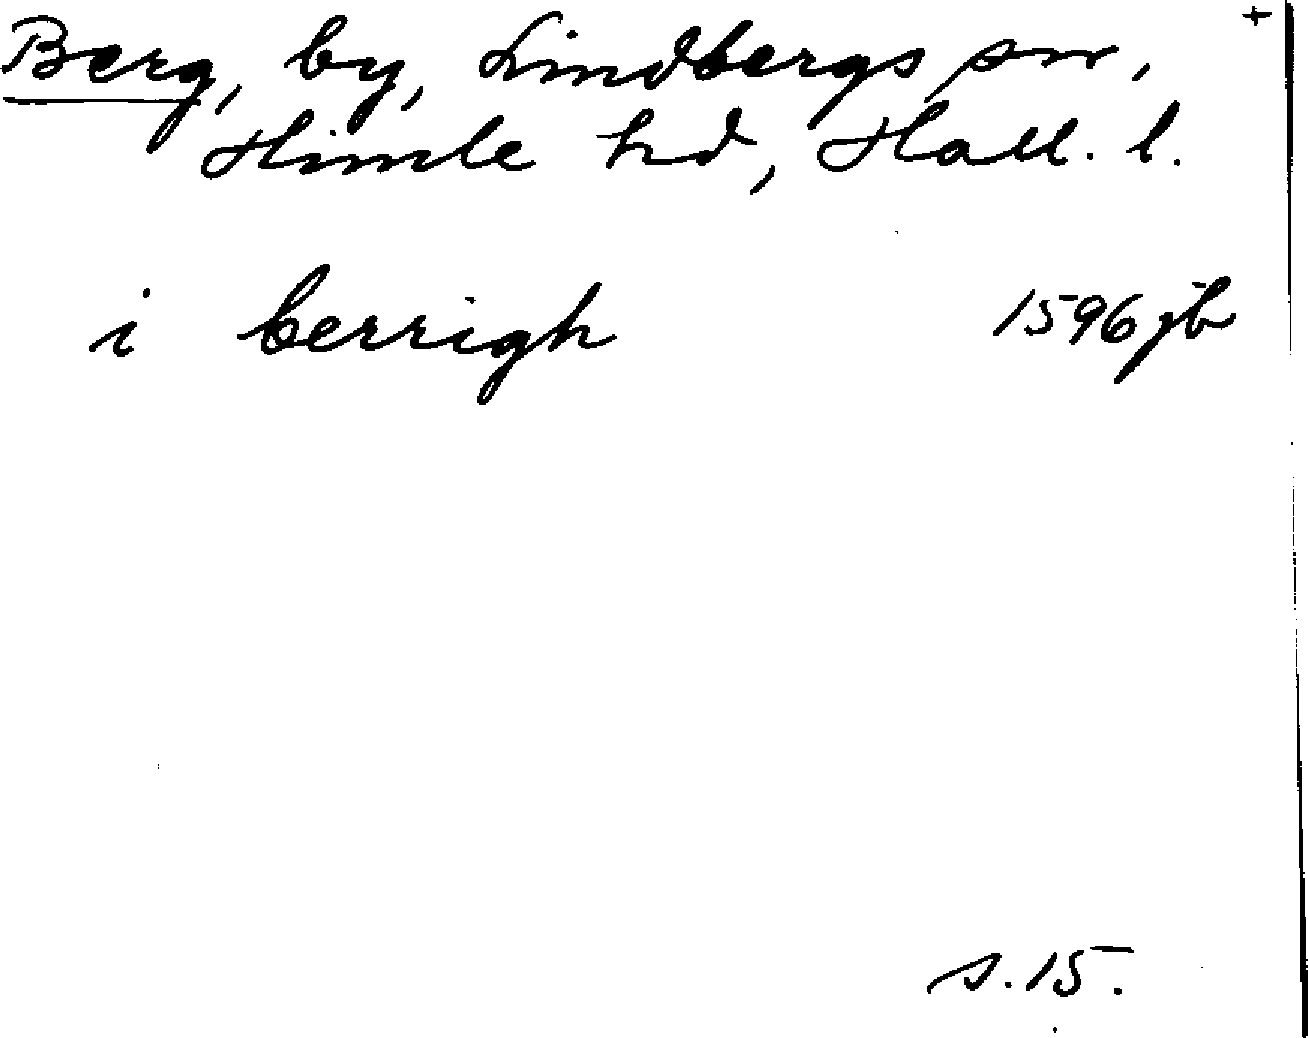 Berg, by, Lindbergs sn, +
Himle hd, Hall. l.
i berrigh 1596 jb
s. 15.